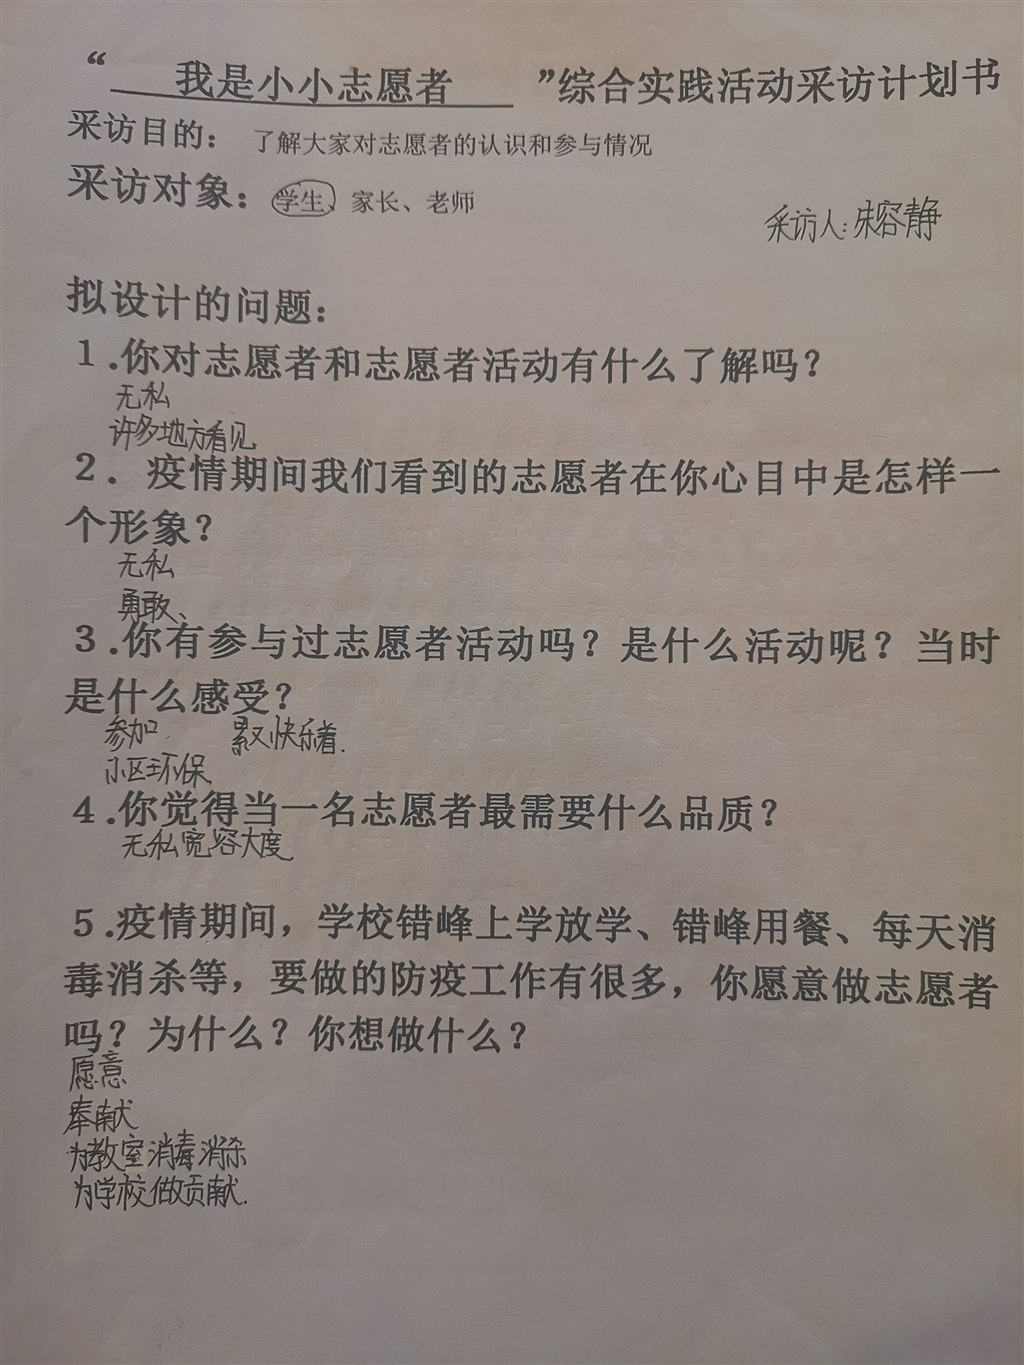 “ 我是小小志愿者 ”综合实践活动采访计划书
采访目的： 了解大家对志愿者的认识和参与情况
采访对象：学生、家长、老师
采访人：朱容静
拟设计的问题：
1.你对志愿者和志愿者活动有什么了解吗？
无私
许多地方看见
2. 疫情期间我们看到的志愿者在你心目中是怎样一
个形象？
无私
勇敢、
3.你有参与过志愿者活动吗？是什么活动呢？当时
是什么感受？
参加 累又快乐着.
小区环保
4.你觉得当一名志愿者最需要什么品质？
无私宽容大度
5.疫情期间，学校错峰上学放学、错峰用餐、每天消
毒消杀等，要做的防疫工作有很多，你愿意做志愿者
吗？为什么？你想做什么？
愿意
奉献
为教室消毒消杀
为学校做贡献.